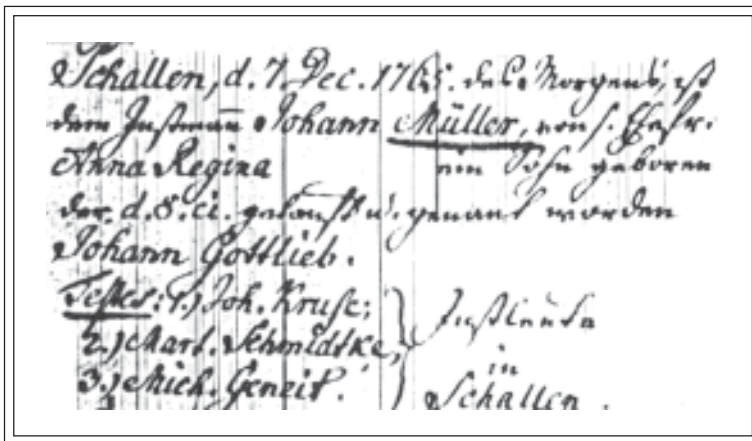 Schallen, d. 7. Dec. 1765. des Morgens, ist
dem Instman̄ Johann Müller, von s. Ehefr.
Anna Regina ein Sohn geboren
der d. 8. ei. getauft u. genant worden
Johann Gottlieb.
Testes: 1.) Joh. Kruse;
2.) Mart. Schmidtke,
3.) Mich. Genzit.
Instleute
in
Schallen.